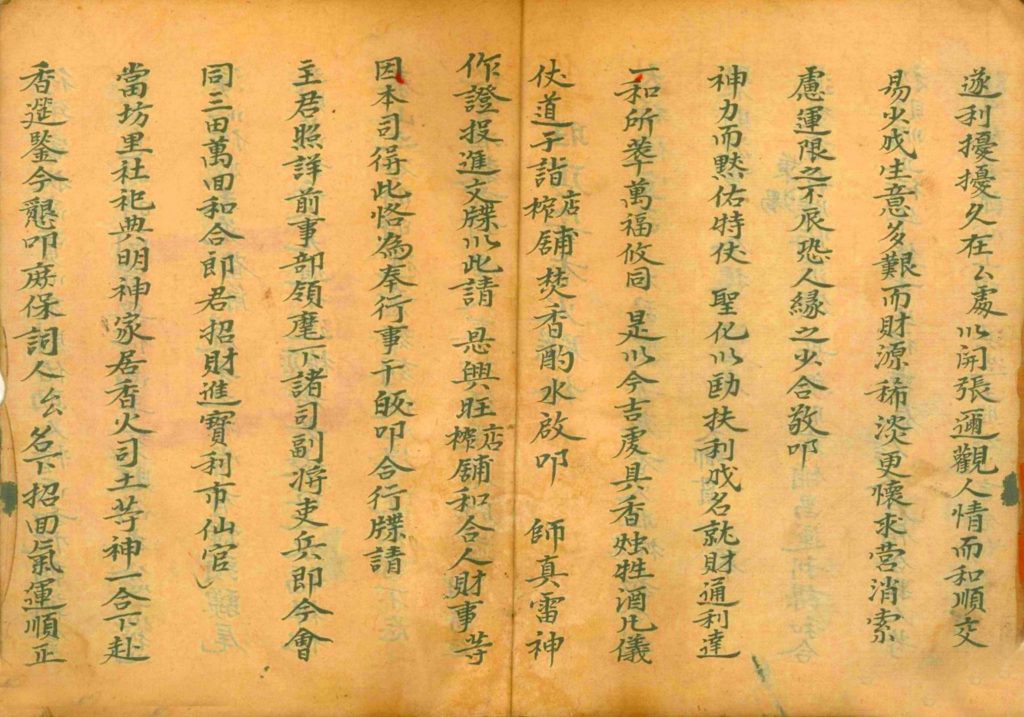 遂利擾擾久在厶處以開張邇觀人情而和順交
易少成生意多艱而財源稀淡更懷求營消索
慮運限之不辰恐人緣之少合敬叩
神力而黙佑特仗 聖化以助扶利成名就財通利達
一和所萃萬福攸同 是以今吉虔具香燭牲酒凡儀
仗道于詣店榨舖焚香酌水啟叩 師真雷神
作證投進文牒以此請 恳興旺店榨舖和合人財事等
因本司得此恪為奉行事干皈叩合行牒請
主君照詳前事部領麾下諸司副将吏兵即今會
同三田萬回和合郎君招財進寶利市仙官
當坊里社祀典明神家居香火司土等神一合下赴
香筵鑒今懇叩庥保詞人厶 名下招回氣運順正